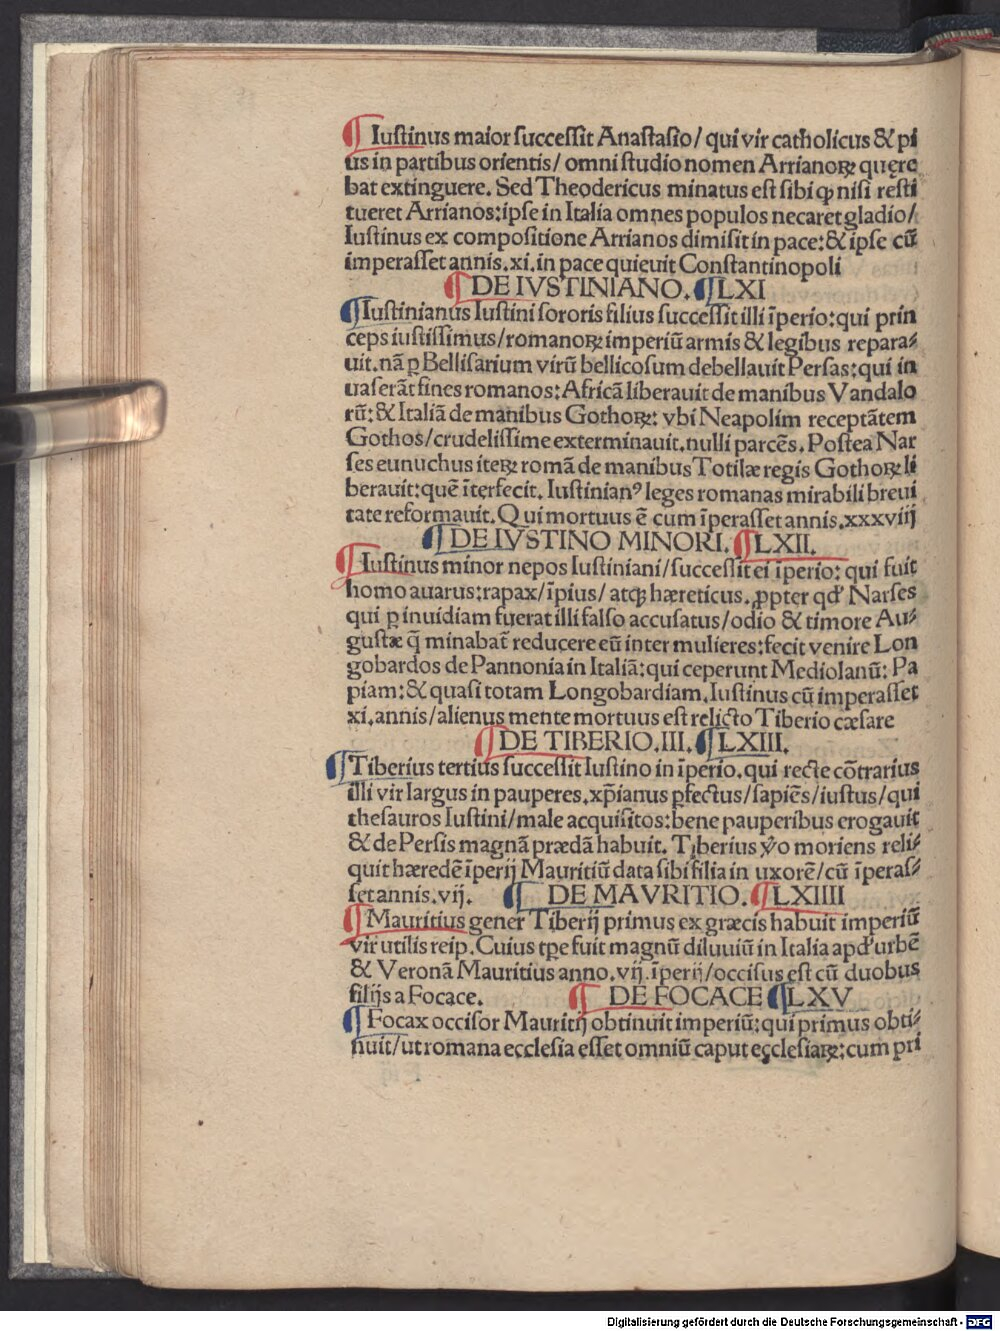 ¶ Iustinus maior successit Anastasio/ qui vir catholicus & pi
us in partibus orientis/ omni studio nomen Arrianoꝝ quęre
bat extinguere. Sed Theodericus minatus est sibi ꝙ nisi resti
tueret Arrianos: ipse in Italia omnes populos necaret gladio/
Iustinus ex compositione Arrianos dimisit in pace: & ipse cū
imperasset annis. xi. in pace quieuit Constantinopoli
¶ DE IVSTINIANO. ¶ LXI
¶ Iustinianus Iustini sororis filius successit illi īperio: qui prin
ceps iustissimus/ romanoꝝ imperiū armis & legibus repara⸗
uit. nā ꝑ Bellisarium virū bellicosum debellauit Persas: qui in
uaserāt fines romanos: Africā liberauit de manibus Vandalo
rū: & Italiā de manibus Gothoꝝ: vbi Neapolim receptātem
Gothos/ crudelissime exterminauit. nulli parcēs. Postea Nar
ses eunuchus iteꝝ romā de manibus Totilæ regis Gothoꝝ li
berauit: quē īterfecit. Iustinianꝰ leges romanas mirabili breui
tate reformauit. Qui mortuus ē cum īperasset annis. xxxviij
¶ DE IVSTINO MINORI. ¶ LXII.
¶ Iustinus minor nepos Iustiniani/ successit ei īperio: qui fuit
homo auarus: rapax/ īpius/ atqꝫ hæreticus. ꝓpter qđ Narses
qui ꝑ inuidiam fuerat illi falso accusatus/ odio & timore Au⸗
gustæ q̄ minabat̄ reducere eū inter mulieres: fecit venire Lon
gobardos de Pannonia in Italiā: qui ceperunt Mediolanū: Pa
piam: & quasi totam Longobardiam. Iustinus cū imperasset
xi. annis/ alienus mente mortuus est relicto Tiberio cæsare
¶ DE TIBERIO. III. ¶ LXIII.
¶ Tiberius tertius successit Iustino in īperio. qui recte cōtrarius
illi vir largus in pauperes. xp̄ianus ꝑfectus/ sapiēs/ iustus/ qui
thesauros Iustini/ male acquisitos: bene pauperibus erogauit
& de Persis magnā prædā habuit. Tiberius ṽo moriens reli⸗
quit hæredē īperij Mauritiū data sibi filia in uxorē/ cū īperas⸗
set annis. vij. ¶ DE MAVRITIO. ¶ LXIIII
¶ Mauritius gener Tiberij primus ex græcis habuit imperiū
vir utilis reip. Cuius tꝑe fuit magnū diluuiū in Italia apđ urbē
& Veronā Mauritius anno. vij. īperij/ occisus est cū duobus
filijs a Focace. ¶ DE FOCACE ¶ LXV
¶ Focax occisor Mauritij obtinuit imperiū: qui primus obti⸗
nuit/ ut romana ecclesia esset omniū caput ecclesiaꝝ: cum pri
Digitalisierung gefördert durch die Deutsche Forschungsgemeinschaft - DFG